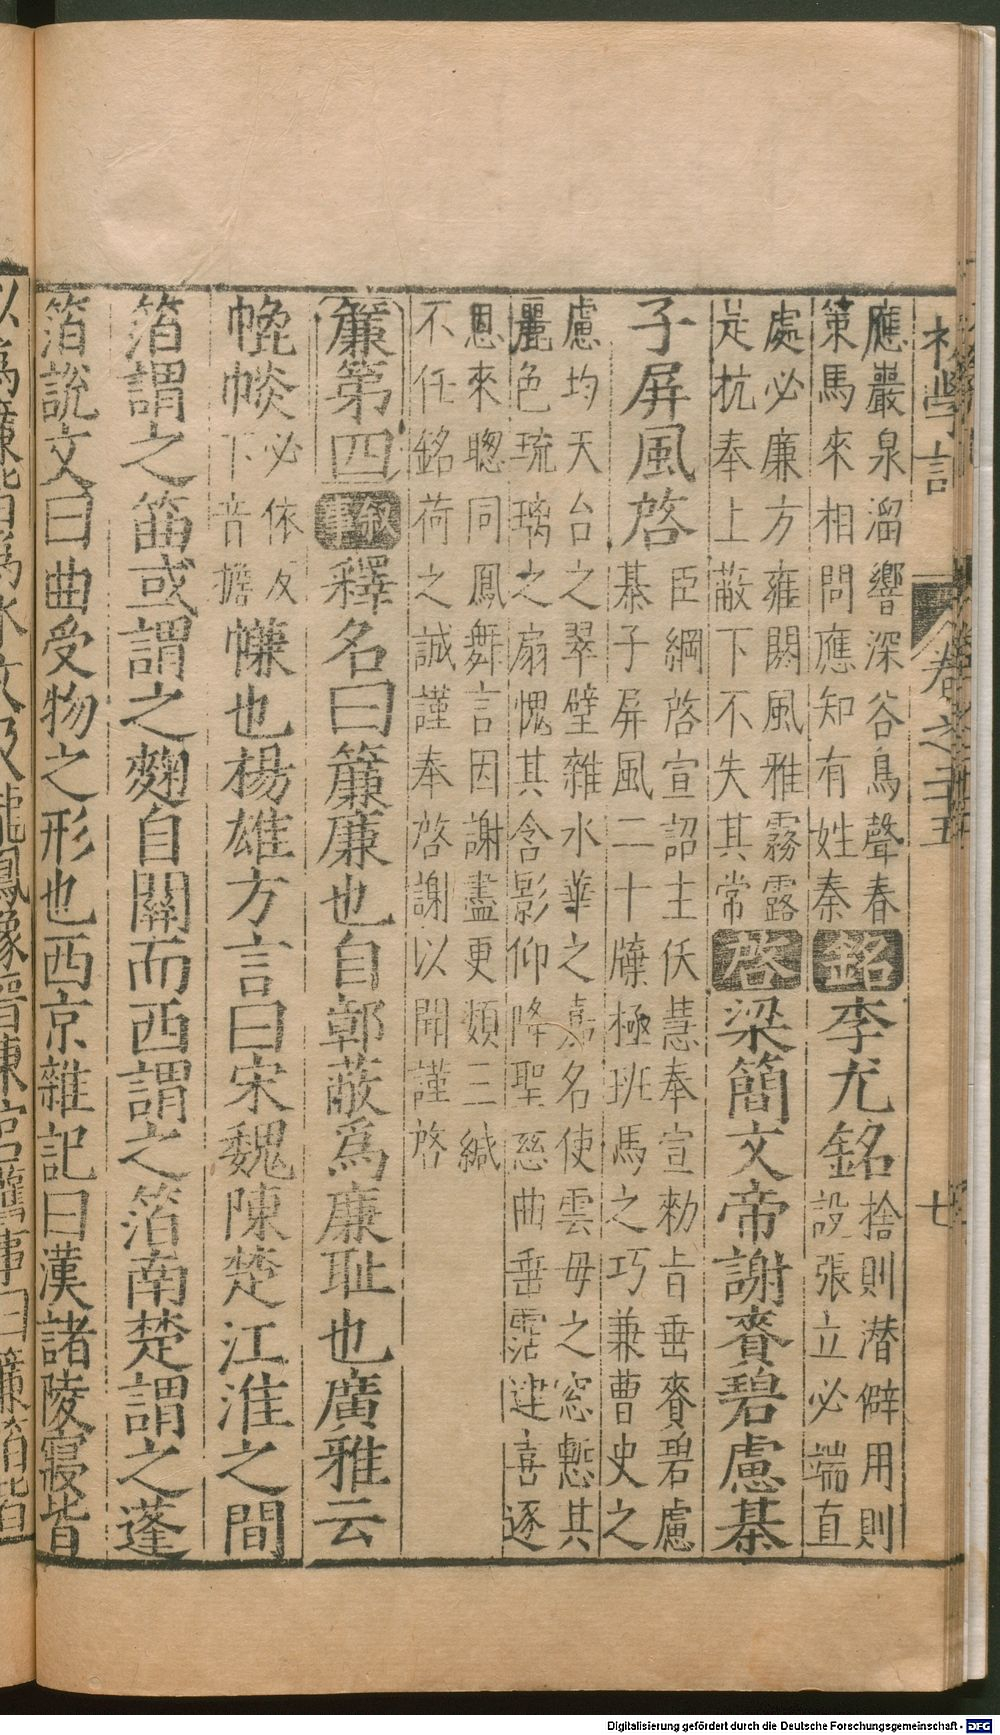 初學記 卷之二十五 七
應巖泉溜響深谷鳥聲春
策馬來相問應知有姓秦
銘 李尤銘
捨則潜僻用則
設張立必端直
處必廉方雍閼風雅霧露
是杭奉上蔽下不失其常
啓 梁簡文帝謝賚碧慮棊
子屏風啓
臣綱啓宣詔主佽慧奉宣勑旨垂賚碧慮
棊子屏風二十牒極班馬之巧兼曹史之
慮均天台之翠壁雜水華之嘉名使雲毋之窓慙其
麗色琉璃之扇愧其含影仰降聖慈曲垂霑逮喜逐
恩來聰同鳳舞言因謝盡更類三緘
不任銘荷之誠謹奉啓謝以聞謹啓
簾第四 叙事 釋名曰簾廉也自鄣蔽爲廉耻也廣雅云
㡈㡘
必依反
下音擔
㡘也楊雄方言曰宋魏陳楚江淮之間
箔謂之笛或謂之麴自關而西謂之箔南楚謂之蓬
箔說文曰曲受物之形也西京雜記曰漢諸陵寢皆
以爲簾